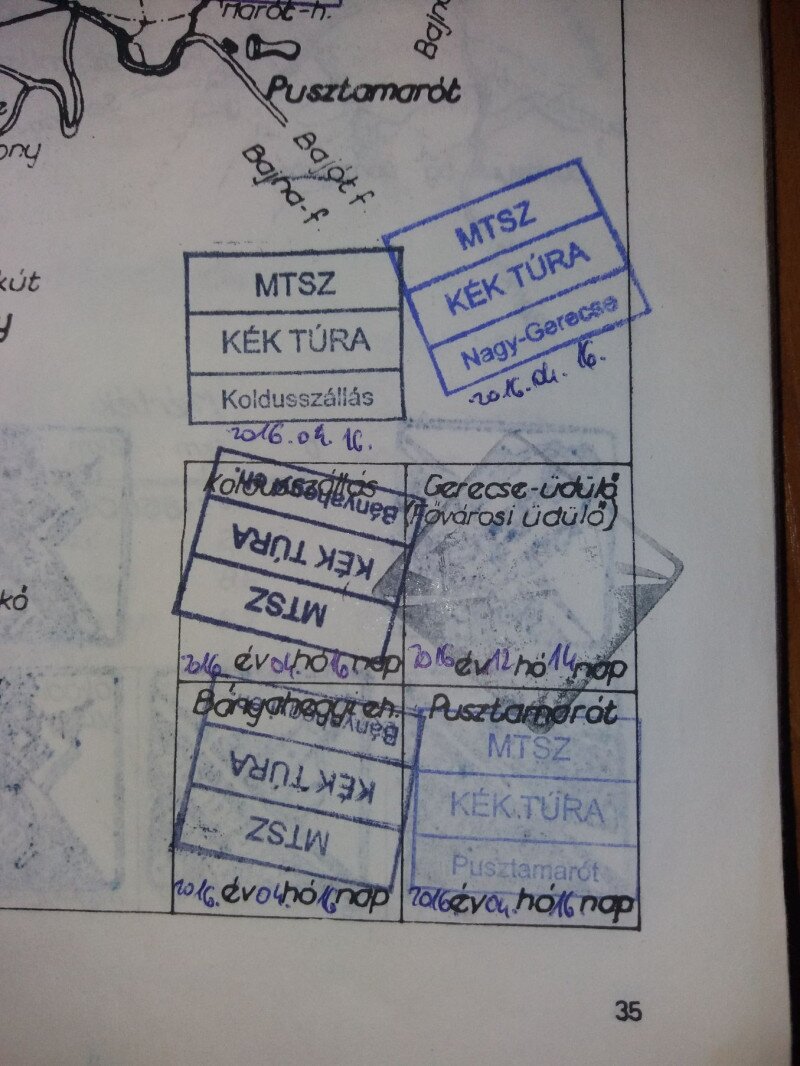 Marót-h.
Bajna
Pusztamarót
ony
Bajót f.
Bajna-f.
kút
MTSZ
KÉK TÚRA
Nagy-Gerecse
2016.04.16.
MTSZ
KÉK TÚRA
Koldusszállás
2016.04.16.
Koldusszállás
Bányahegyi eh.
KÉK TÚRA
MTSZ
2016. év 04. hó 16 nap
Gerecse-üdülő
(Fővárosi üdülő)
2016 év 12 hó 14 nap
kó
Bányahegyi eh.
KÉK TÚRA
MTSZ
2016. év 04. hó 16 nap
Pusztamarót
MTSZ
KÉK TÚRA
Pusztamarót
2016 év 04. hó 16. nap
35